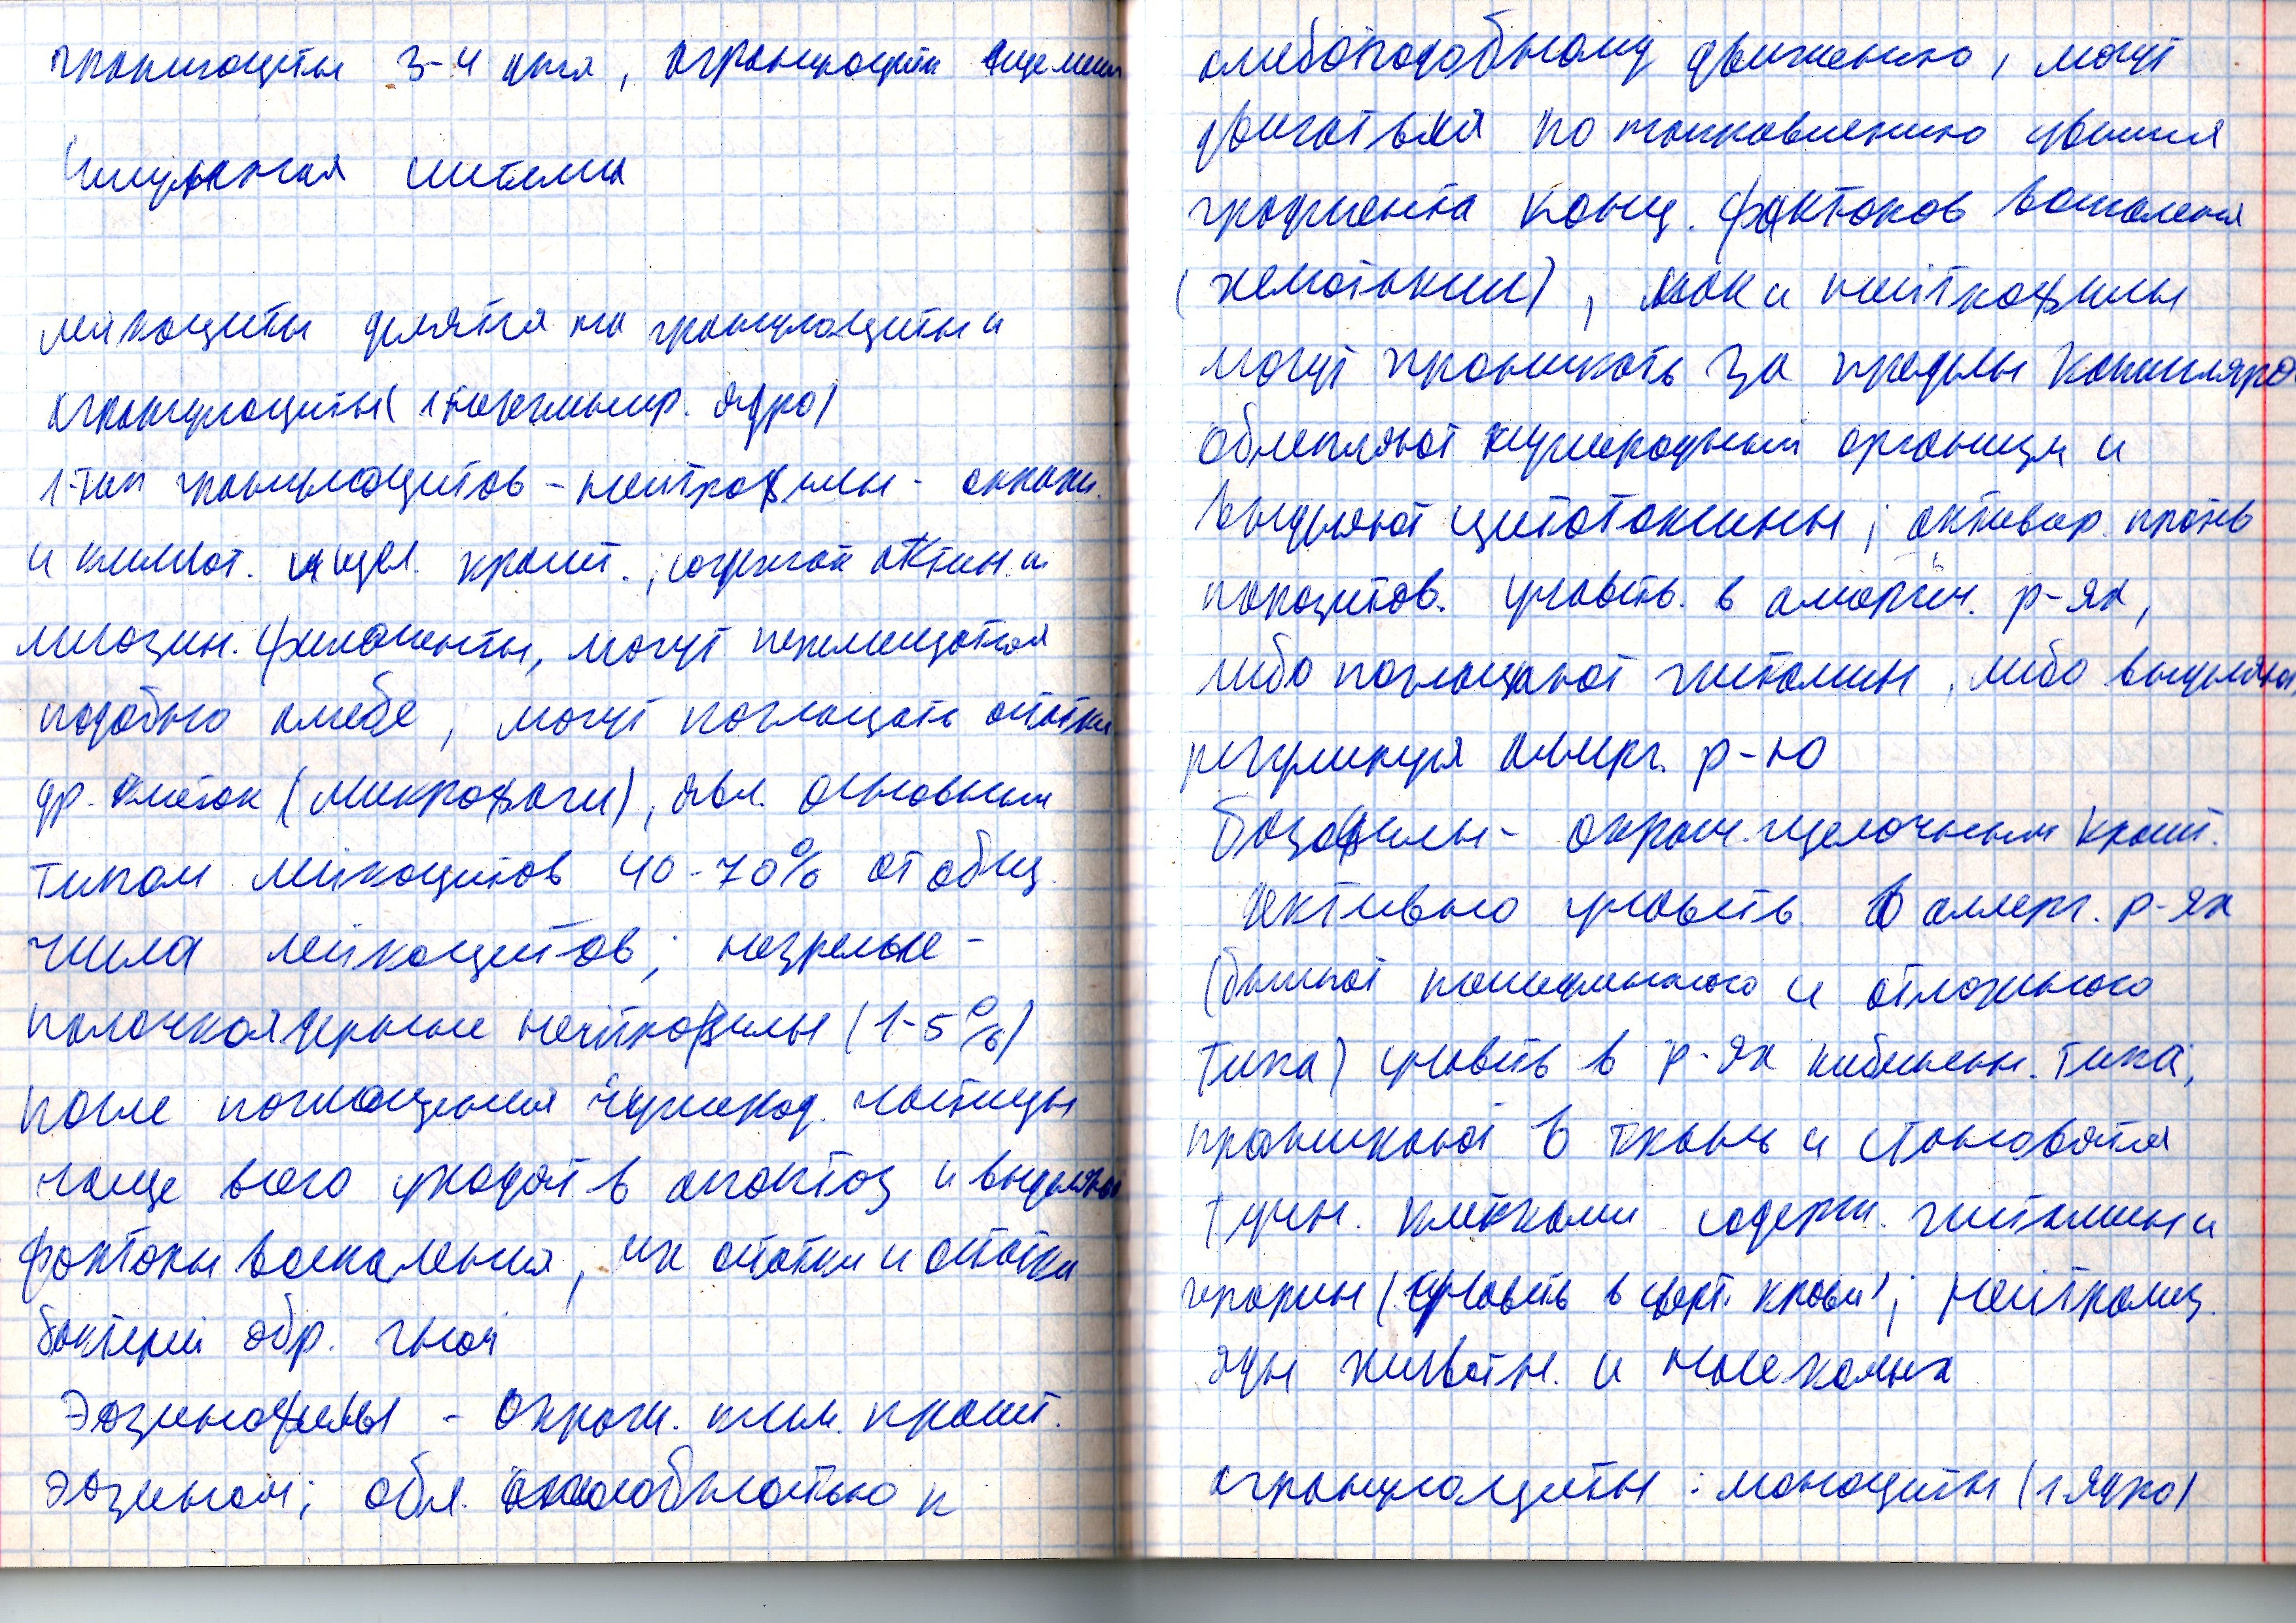 гранулоциты 3-4 дня, агранулоциты
Иммунная система
лейкоциты делятся на гранулоциты и
агранулоциты (1 несегментир. ядро)
1-тип гранулоцитов - нейтрофилы - окраш.
и кислот. и щел. красит.; содержат актин. и
миозин. филаменты, могут перемещатся
подобно амебе, могут поглощать остатки
др. клеток (микрофаги), явл. основным
типом лейкоцитов 40-70% от общ.
числа лейкоцитов; незрелые -
палочкоядерные нейтрофилы (1-5%)
после поглощения чужерод. частицы
чаще всего уходят в апоптоз и выделяют
факторы воспаления, их остатки и остатки
бактерий обр. гной
Эозинофилы - окраш. кисл. красит.
эозином; обл. способностью к
амебоподобному движению, могут
двигаться по направлению
градиента конц. факторов воспаления
(хемотаксис), как и нейтрофилы
могут проникать за пределы капилляров
облепляют чужеродный организм и
выделяют цитотоксины; актив. против
паразитов. участв. в аллергич. р-ях,
либо поглощают гистамин, либо выделяют
регулируя аллерг. р-ю
базофилы - окраш. щелочным красит.
активно участв. в аллерг. р-ях
(быстрого немедленного и отложенного
типа) участв в р-ях типа;
проникают в ткань и становятся
тучн. клетками содерж. гистамин и
гепарин (участв в сверт. крови); нейтрализ.
яды животн. и насекомых
агранулоциты: моноциты (1 ядро)